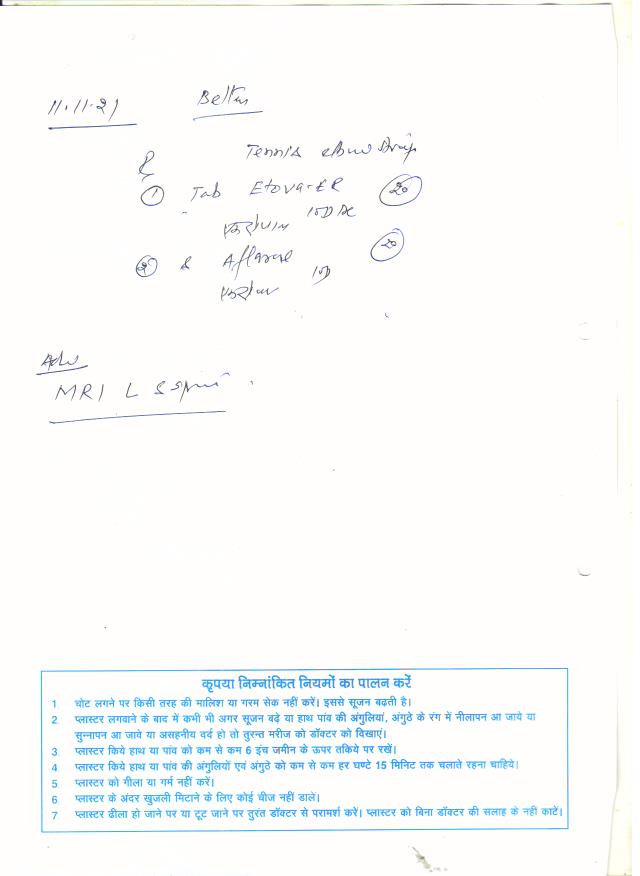 11.11.21 Better
Tennis elbow Strap
R
1 Tab Etova-ER 20
2 Aflarare 20
Adv
MRI L S Spine
कृपया निम्नांकित नियमों का पालन करें
1. चोट लगने पर किसी तरह की मालिश या गरम सेक नहीं करें। इससे सूजन बढती है।
2. प्लास्टर लगवाने के बाद में कभी भी अगर सूजन बढ़े या हाथ पांव की अंगुलियां, अंगुठे के रंग में नीलापन आ जाये या
सुन्नापन आ जावे या असहनीय दर्द हो तो तुरन्त मरीज को डॉक्टर को दिखाएं।
3. प्लास्टर किये हाथ या पांव को कम से कम 6 इंच जमीन के ऊपर तकिये पर रखें।
4. प्लास्टर किये हाथ या पांव की अंगुलियों एवं अंगुठे को कम से कम हर घण्टे 15 मिनिट तक चलाते रहना चाहिये।
5 प्लास्टर को गीला या गर्म नहीं करें।
6 प्लास्टर के अंदर खुजली मिटाने के लिए कोई चीज नहीं डालें।
7 प्लास्टर ढीला हो जाने पर या टूट जाने पर तुरंत डॉक्टर से परामर्श करें। प्लास्टर को बिना डॉक्टर की सलाह के नहीं काटें।